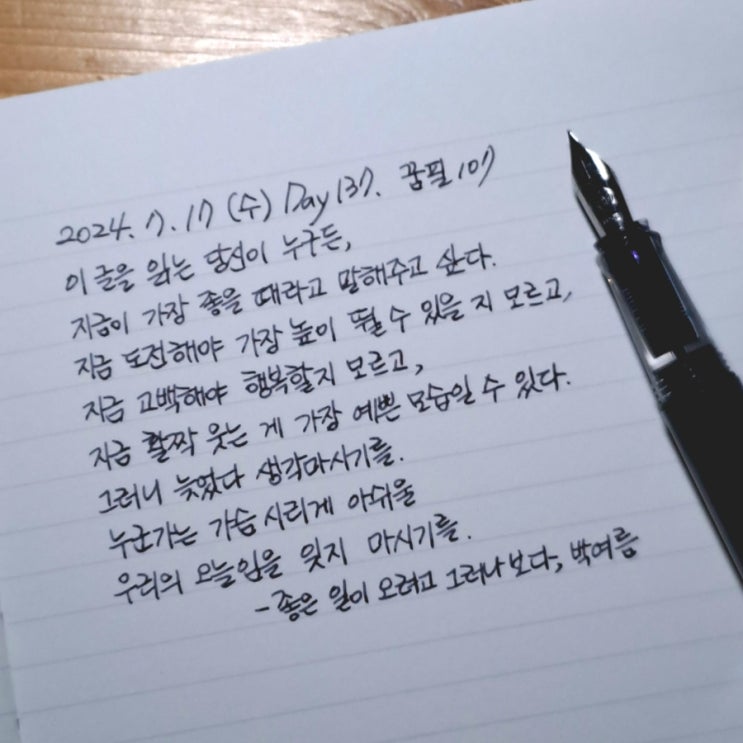 2024. 7. 17 (수) Day 137. 꿈필 107
이 글을 읽는 당신이 누구든,
지금이 가장 좋을 때라고 말해주고 싶다.
지금 도전해야 가장 높이 뛸 수 있을 지 모르고,
지금 고백해야 행복할지 모르고,
지금 활짝 웃는 게 가장 예쁜 모습일 수 있다.
그러니 늦었다 생각마시기를.
누군가는 가슴 시리게 아쉬울
우리의 오늘임을 잊지 마시기를.
- 좋은 일이 오려고 그러나 보다, 박여름